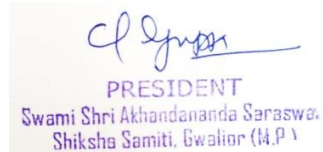 PRESIDENT
Swami Shri Akhandananda Saraswa
Shiksha Samiti, Gwalior (M.P.)